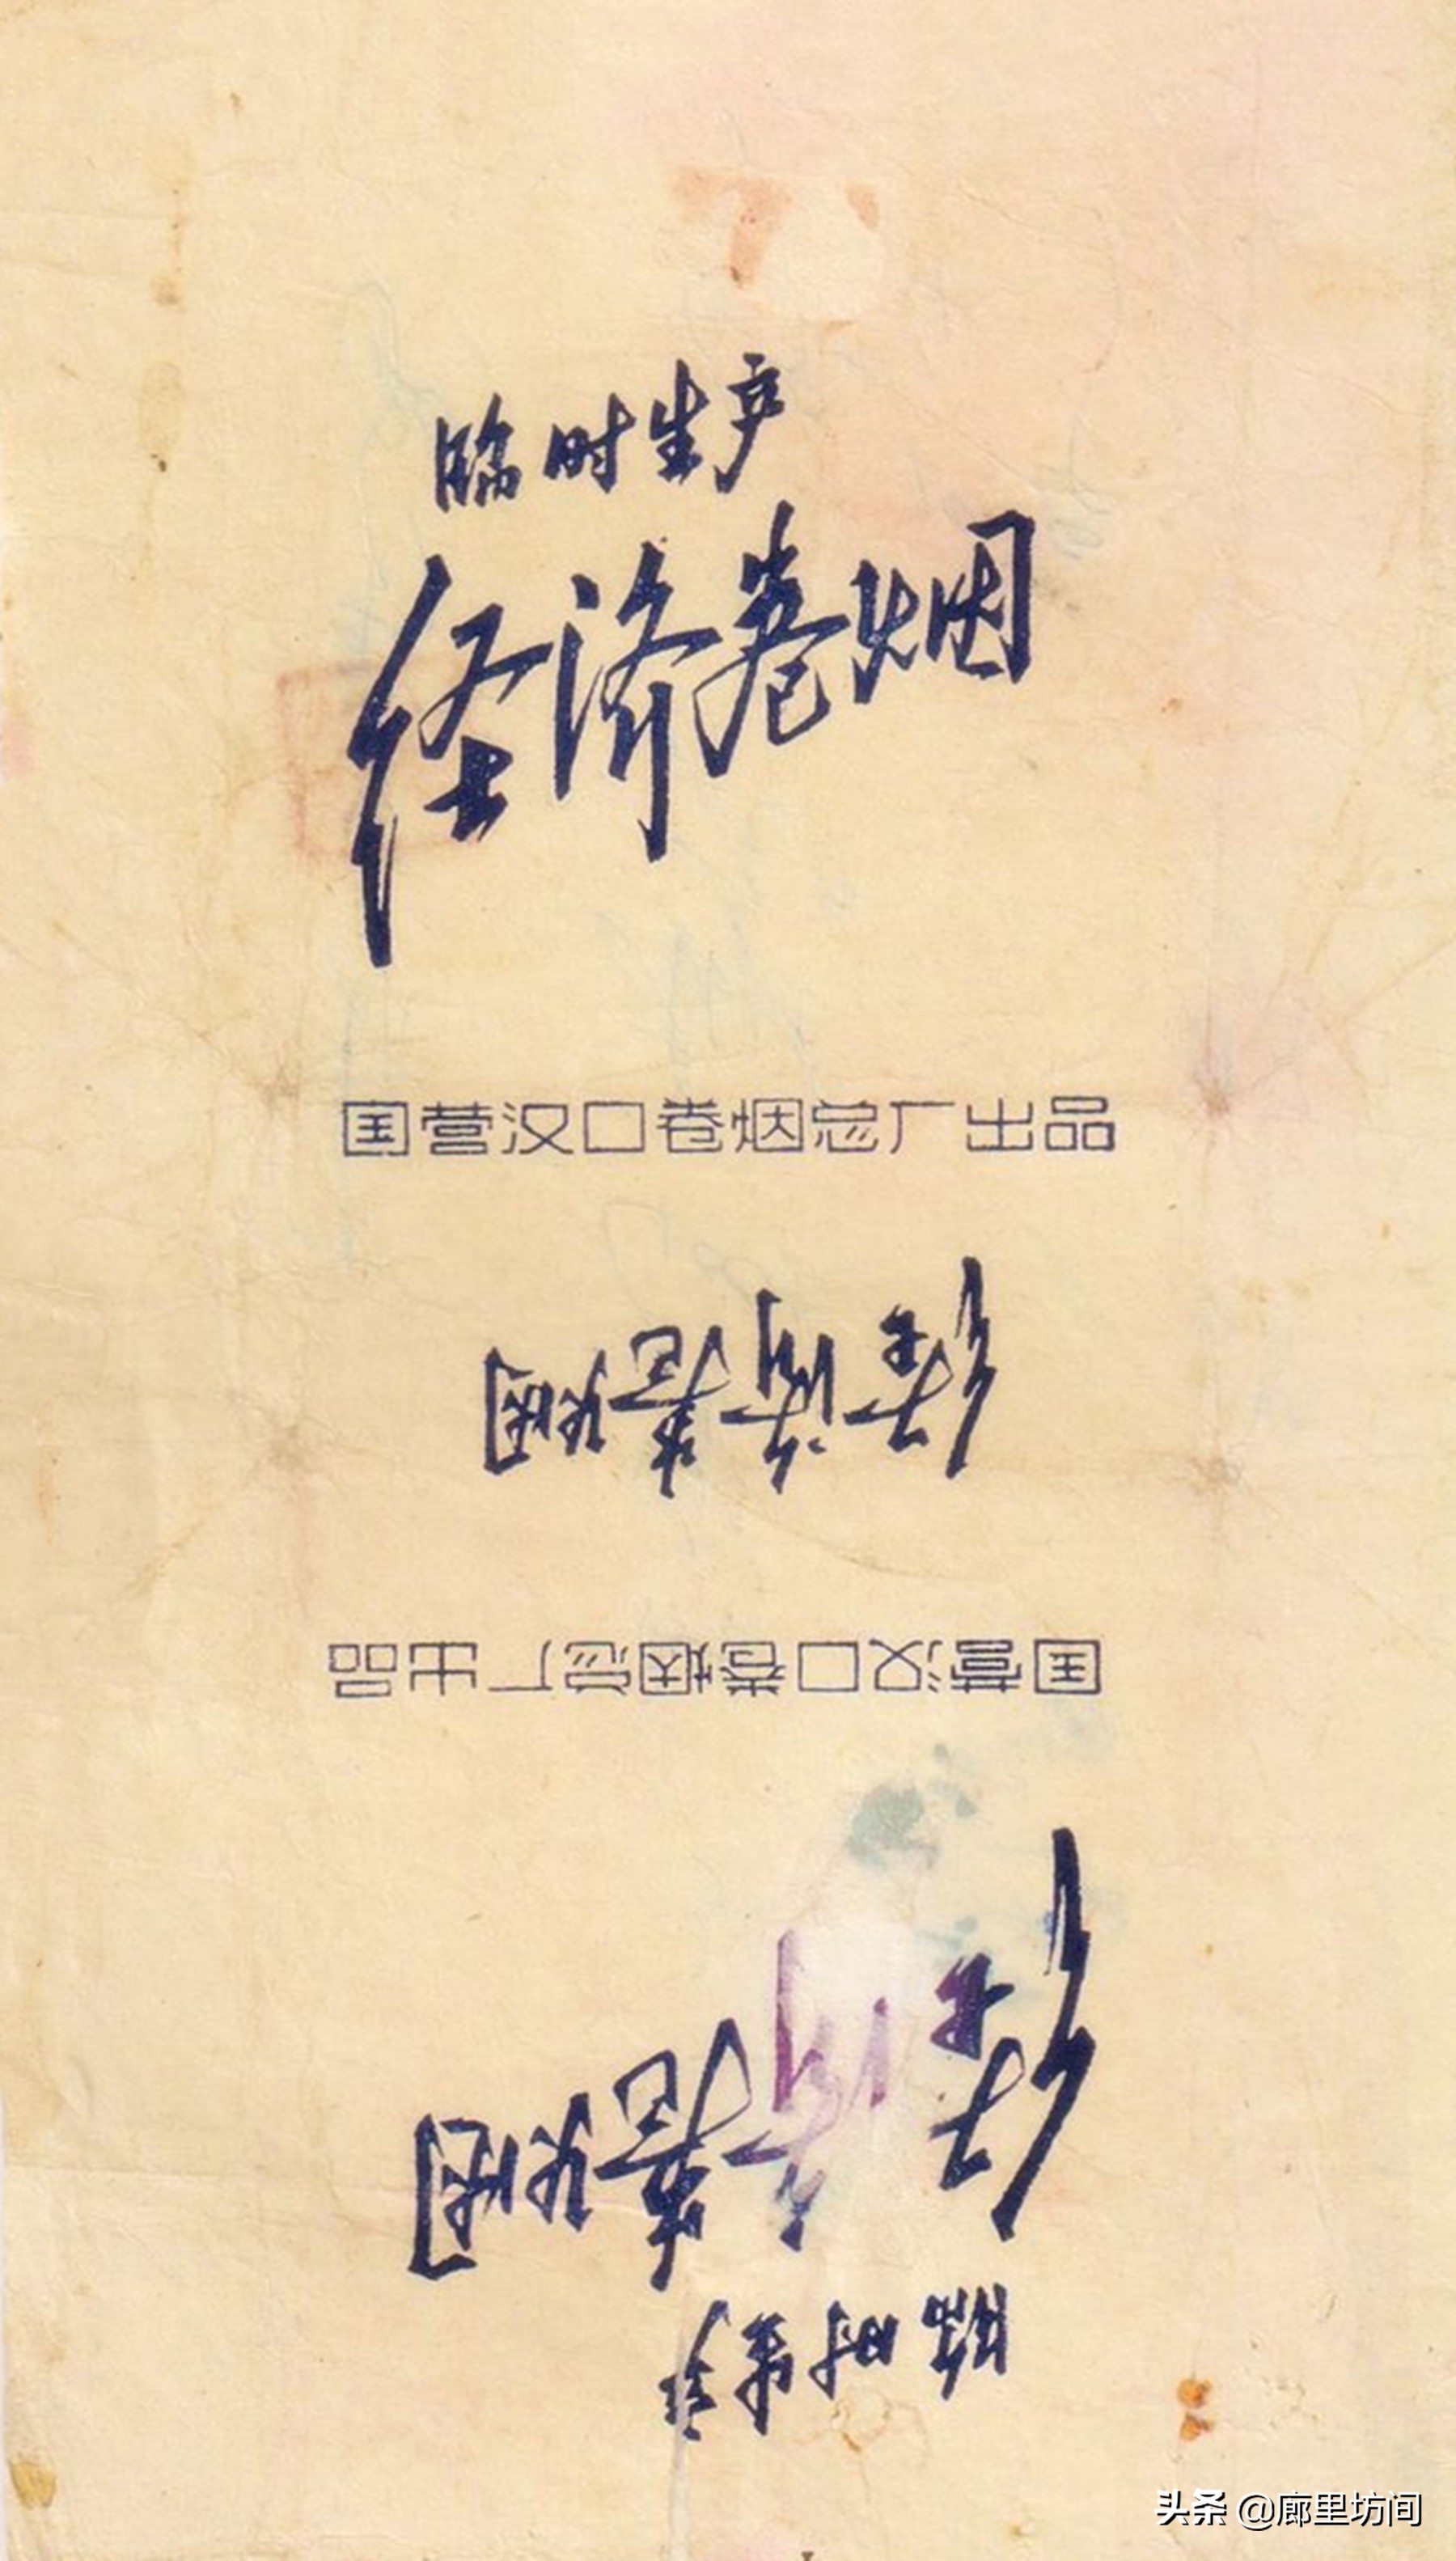 临时生产
经济卷烟
国营汉口卷烟总厂出品
经济卷烟
国营汉口卷烟总厂出品
经济卷烟
临时生产
头条 @廊里坊间